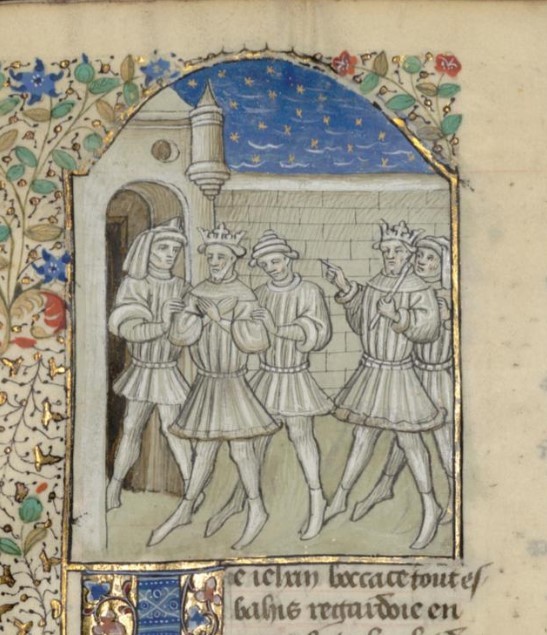 e iehan boccace tout es/
bahis regardoie en